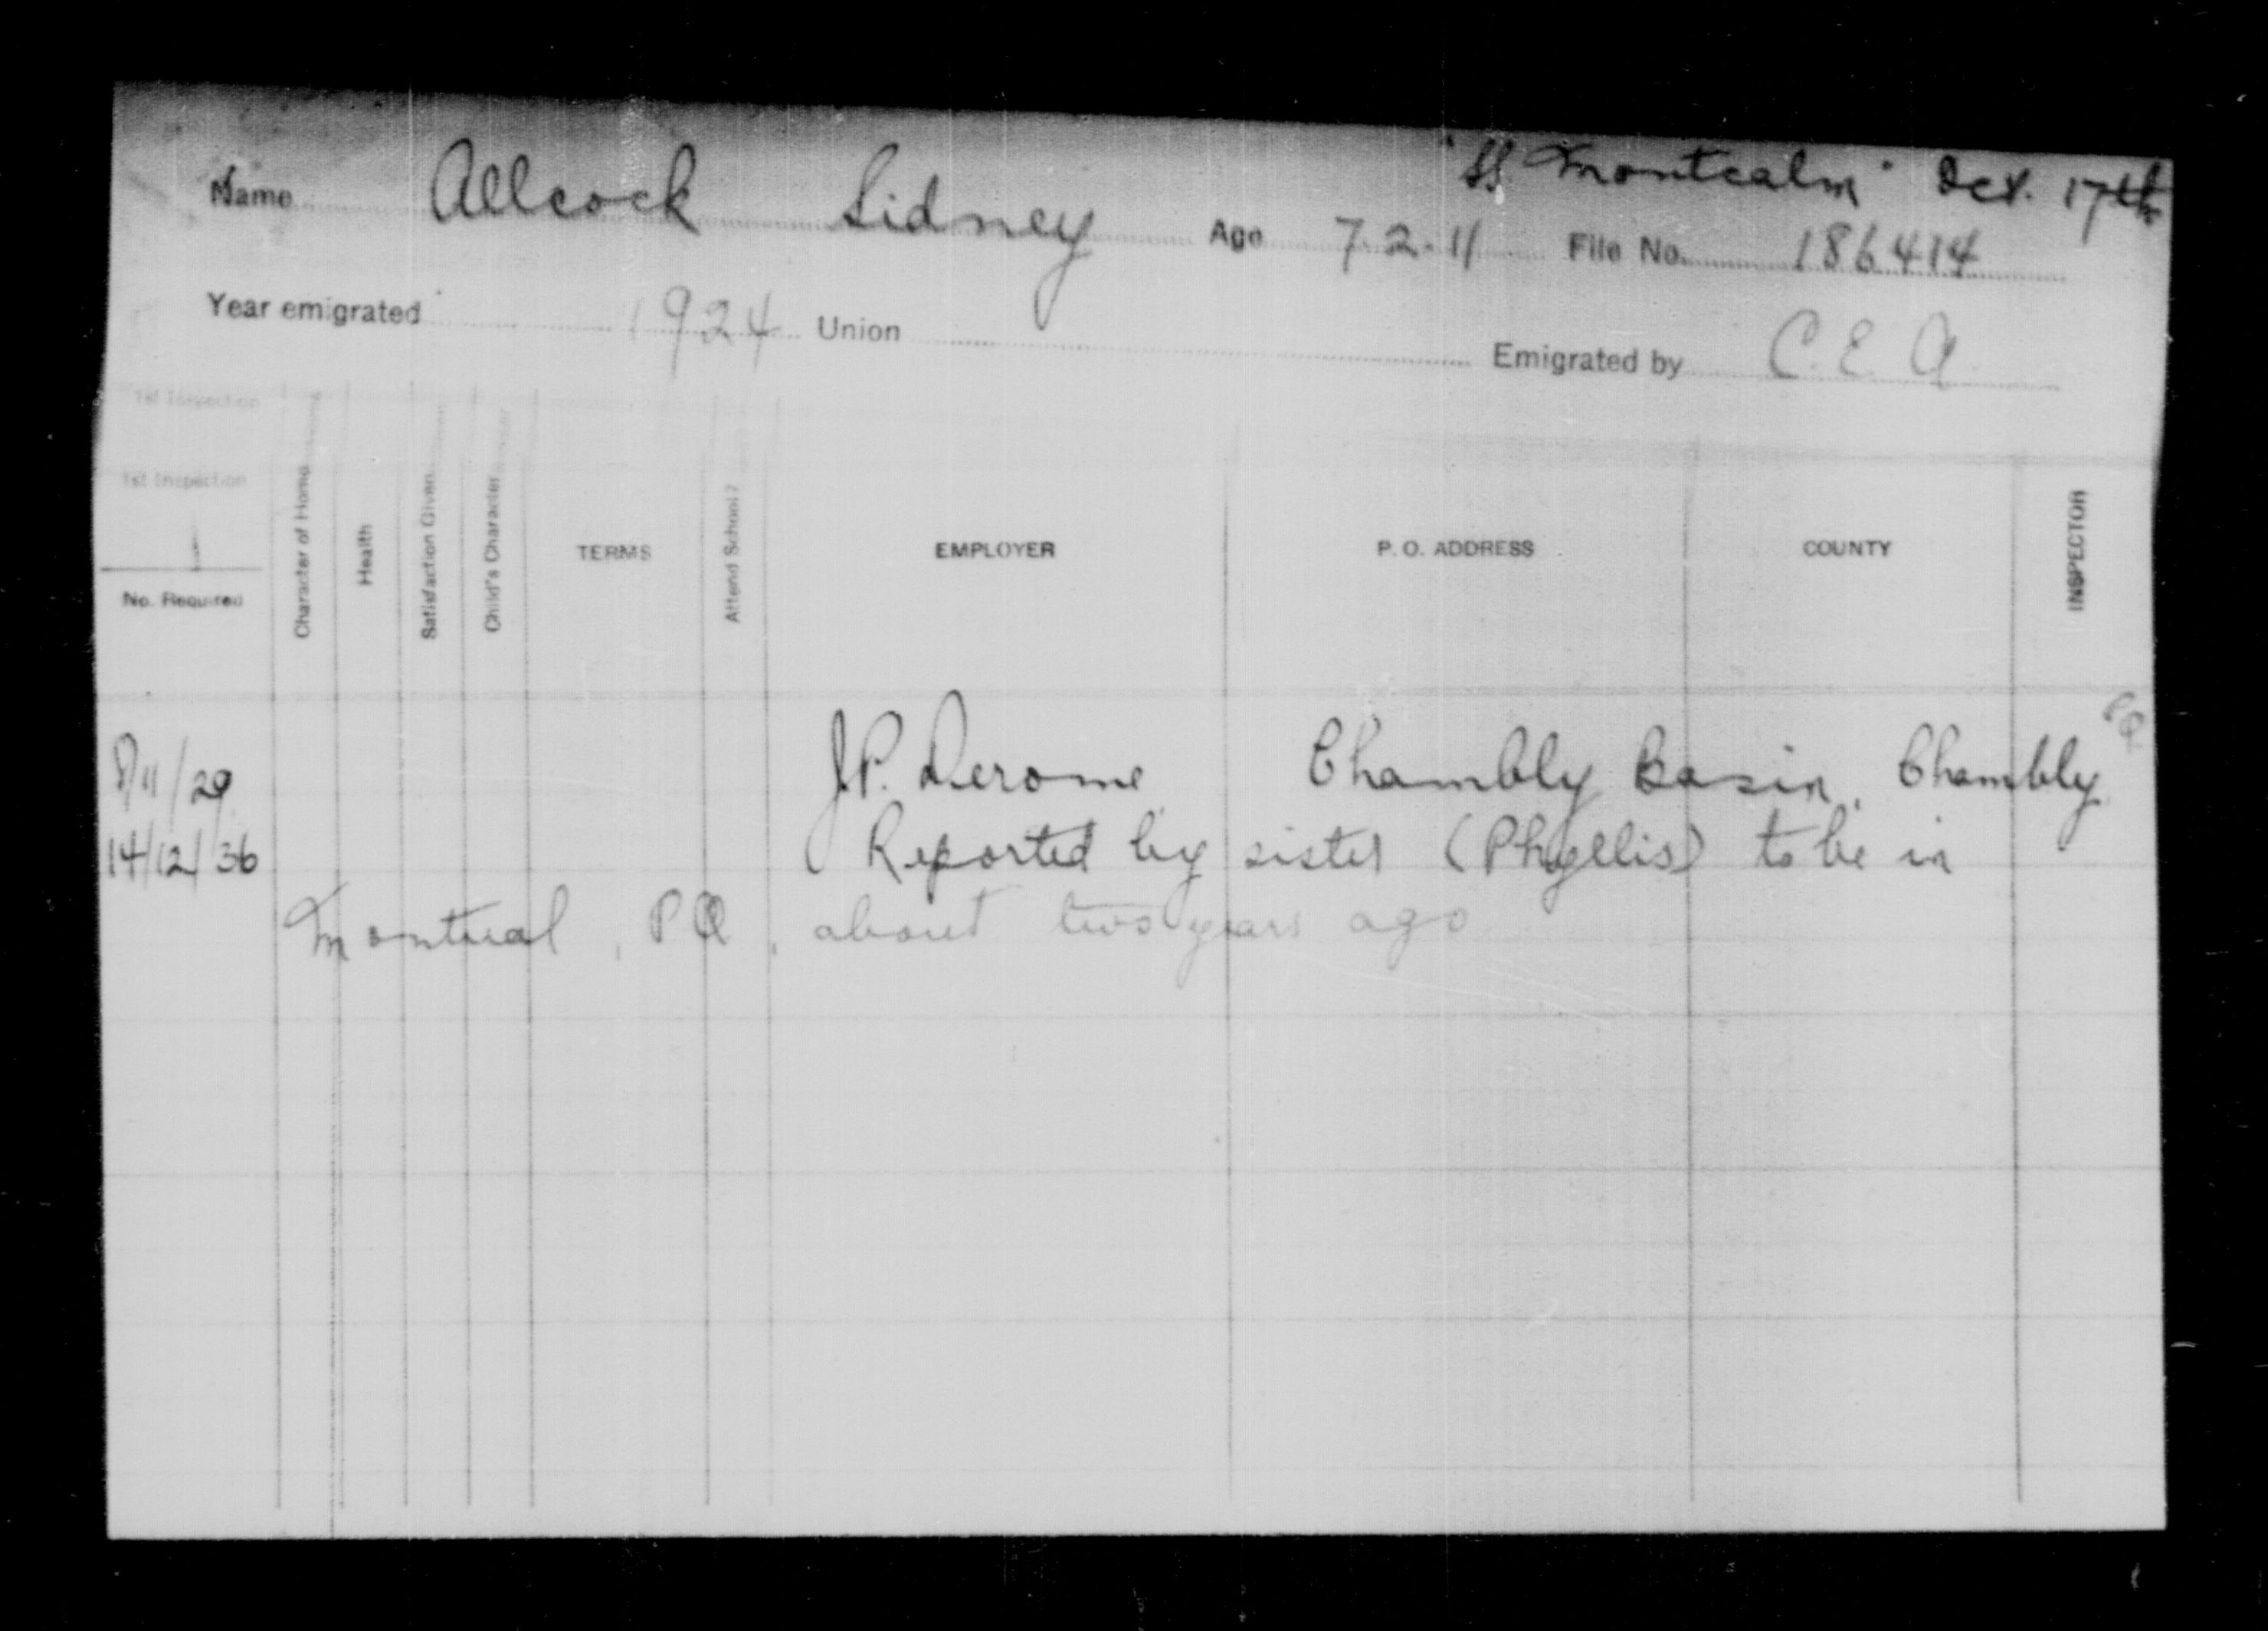 "SS. Montcalm" Oct. 17th
Name Allcock Sidney Age 7.2.11 File No. 186414
Year emigrated 1924 Union Emigrated by C. E. A.
1st Inspection
1st Inspection
No. Required
Character of Home
Health
Satisfaction Given
Child's Character
TERMS
Attend School?
EMPLOYER
P. O. ADDRESS
COUNTY
INSPECTOR
8/11/29 J.P. Derome Chambly Basin, Chambly PQ
14/12/36 Reported by sister (Phyllis) to be in
Montreal, PQ, about two years ago